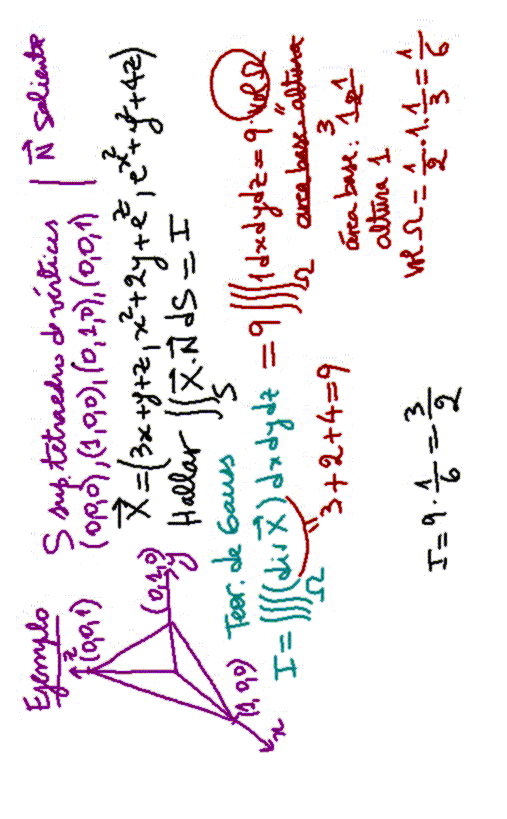 Ejemplo
S sup. tetraedro de vértices
(0,0,0), (1,0,0), (0,1,0), (0,0,1)
N⃗ saliente
z
(0,0,1)
(0,1,0)
y
(1,0,0)
x
X⃗ = (3x+y+z, x²+2y+e^z, e^{x²}+y²+4z)
Hallar ∬_S X⃗·N⃗ dS = I
Teor. de Gauss
I = ∭_Ω (div X⃗) dxdydz = 9 ∭_Ω 1 dxdydz = 9 vol Ω
= 3+2+4=9
área base · altura
3
área base: 1/2
altura 1
vol Ω = 1/2 · 1 · 1/3 = 1/6
I = 9 · 1/6 = 3/2